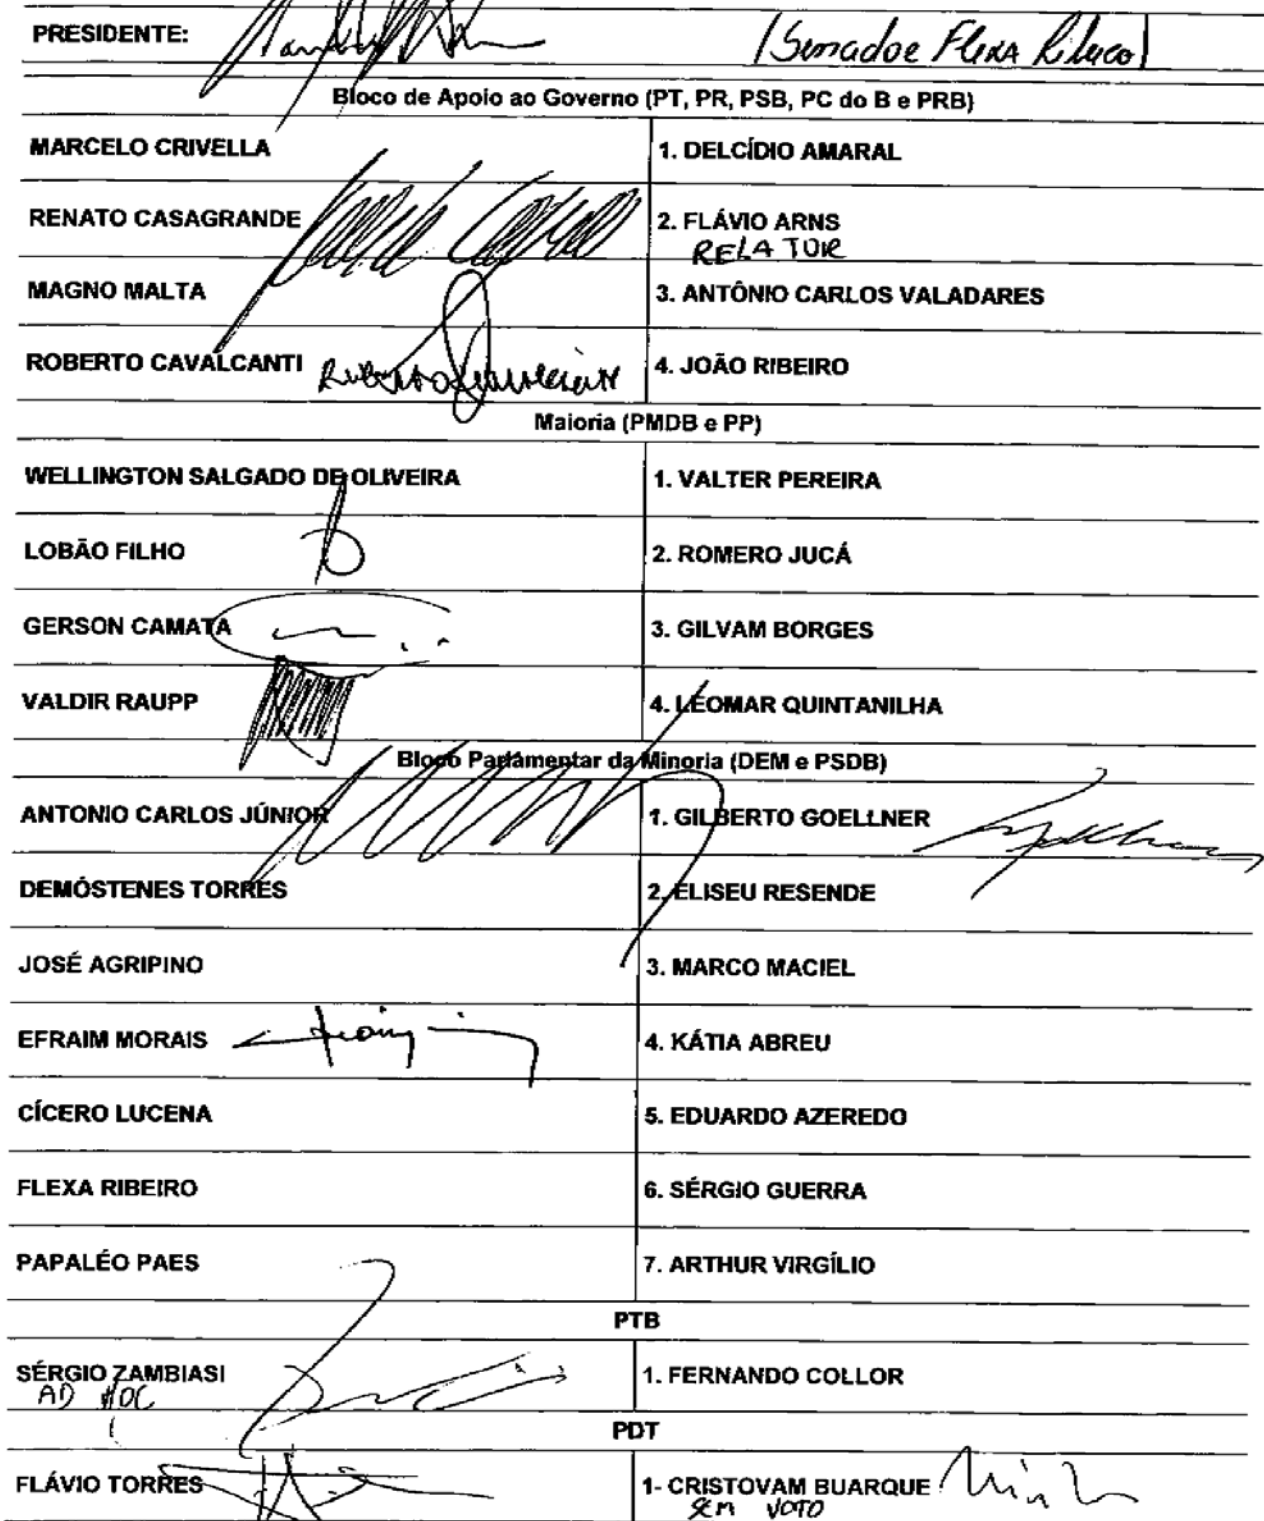 PRESIDENTE: (Senador Flexa Ribeiro)
Bloco de Apoio ao Governo (PT, PR, PSB, PC do B e PRB)
MARCELO CRIVELLA 1. DELCÍDIO AMARAL
RENATO CASAGRANDE 2. FLÁVIO ARNS
RELATOR
MAGNO MALTA 3. ANTÔNIO CARLOS VALADARES
ROBERTO CAVALCANTI 4. JOÃO RIBEIRO
Maioria (PMDB e PP)
WELLINGTON SALGADO DE OLIVEIRA 1. VALTER PEREIRA
LOBÃO FILHO 2. ROMERO JUCÁ
GERSON CAMATA 3. GILVAM BORGES
VALDIR RAUPP 4. LEOMAR QUINTANILHA
Bloco Parlamentar da Minoria (DEM e PSDB)
ANTONIO CARLOS JÚNIOR 1. GILBERTO GOELLNER
DEMÓSTENES TORRES 2. ELISEU RESENDE
JOSÉ AGRIPINO 3. MARCO MACIEL
EFRAIM MORAIS 4. KÁTIA ABREU
CÍCERO LUCENA 5. EDUARDO AZEREDO
FLEXA RIBEIRO 6. SÉRGIO GUERRA
PAPALÉO PAES 7. ARTHUR VIRGÍLIO
PTB
SÉRGIO ZAMBIASI 1. FERNANDO COLLOR
AD HOC
PDT
FLÁVIO TORRES 1- CRISTOVAM BUARQUE
SEM VOTO